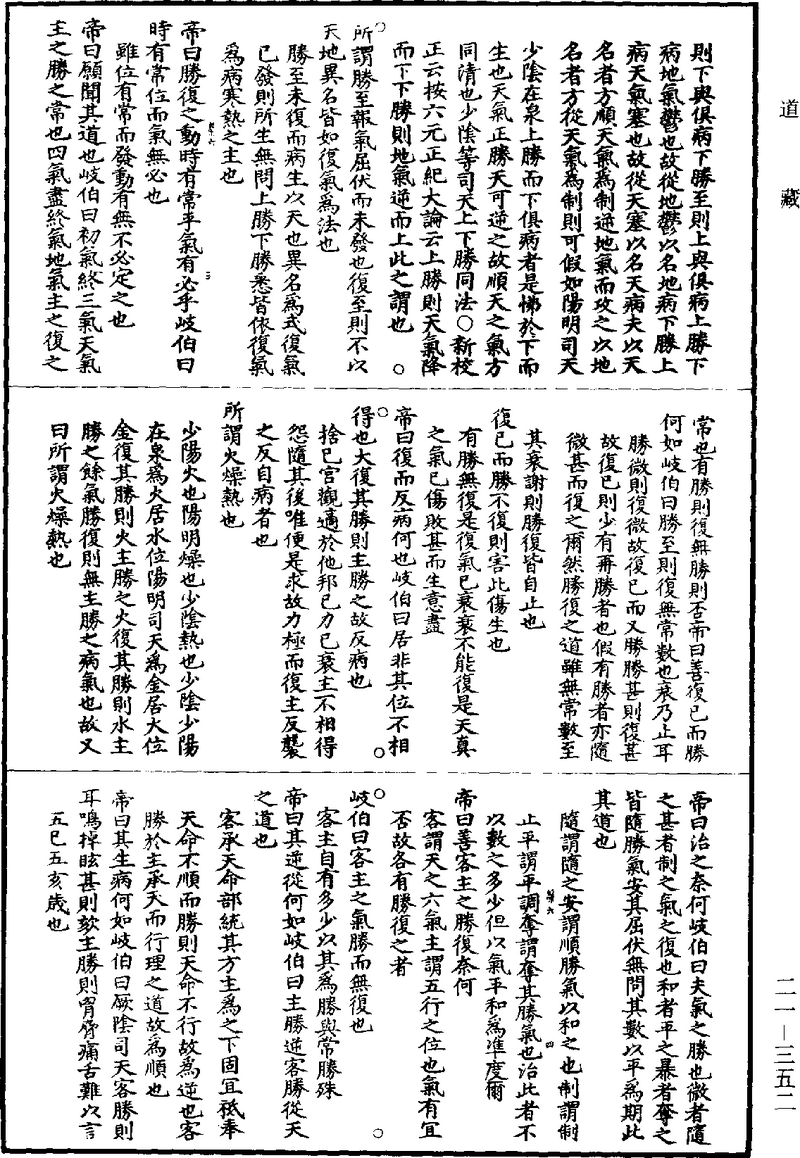 道藏
則下與俱病下勝至則上與俱病上勝下
病地氣鬱也故從地鬱以名地病下勝上
病天氣塞也故從天塞以名天病夫以天
名者方順天氣爲制逆地氣而攻之以地
名者方從天氣爲制則可假如陽明司天
少陰在泉上勝而下俱病者是怫於下而
生也天氣正勝天可逆之故順天之氣方
同清也少陰等司天上下勝同法○新校
正云按六元正紀大論云上勝則天氣降
而下下勝則地氣逆而上此之謂也 ○
○
所謂勝至報氣屈伏而未發也復至則不以
天地異名皆如復氣爲法也
勝至未復而病生以天也異名爲式復氣
已發則所生無問上勝下勝悉皆依復氣
爲病寒熱之主也
帝曰勝復之動時有常乎氣有必乎岐伯曰
時有常位而氣無必也
雖位有常而發動有無不必定之也
帝曰願聞其道也岐伯曰初氣終三氣天氣
主之勝之常也四氣盡終氣地氣主之復之
常也有勝則復無勝則否帝曰善復已而勝
何如岐伯曰勝至則復無常數也衰乃止耳
勝微則復微故復已而又勝勝甚則復甚
故復已則少有再勝者也假有勝者亦隨
微甚而復之爾然勝復之道雖無常數至
其衰謝則勝復皆自止也
復已而勝不復則害此傷生也
有勝無復是復氣已衰衰不能復是天真
之氣已傷敗甚而生意盡
帝曰復而反病何也岐伯曰居非其位不相
○
得也大復其勝則主勝之故反病也
捨己宮觀適於他邦己力已衰主不相得
怨隨其後唯便是求故力極而復主反襲
之反自病者也
所謂火燥熱也
少陽火也陽明燥也少陰熱也少陰少陽
在泉爲火居水位陽明司天爲金居火位
金復其勝則火主勝之火復其勝則水主
勝之餘氣勝復則無主勝之病氣也故又
曰所謂火燥熱也
帝曰治之奈何岐伯曰夫氣之勝也微者隨
之甚者制之氣之復也和者平之暴者奪之
皆隨勝氣安其屈伏無問其數以平爲期此
其道也
隨謂隨之安謂順勝氣以和之也制謂制
止平謂平調奪謂奪其勝氣也治此者不
以數之多少但以氣平和爲準度爾
帝曰善客主之勝復奈何
客謂天之六氣主謂五行之位也氣有宜
否故各有勝復之者
○
岐伯曰客主之氣勝而無復也
客主自有多少以其爲勝與常勝殊
帝曰其逆從何如岐伯曰主勝逆客勝從天
之道也
客承天命部統其方主爲之下固宜祗奉
天命不順而勝則天命不行故爲逆也客
勝於主承天而行理之道故爲順也
帝曰其生病何如岐伯曰厥陰司天客勝則
耳鳴掉眩甚則欬主勝則胷脅痛舌難以言
五巳五亥歲也
二一—三五二